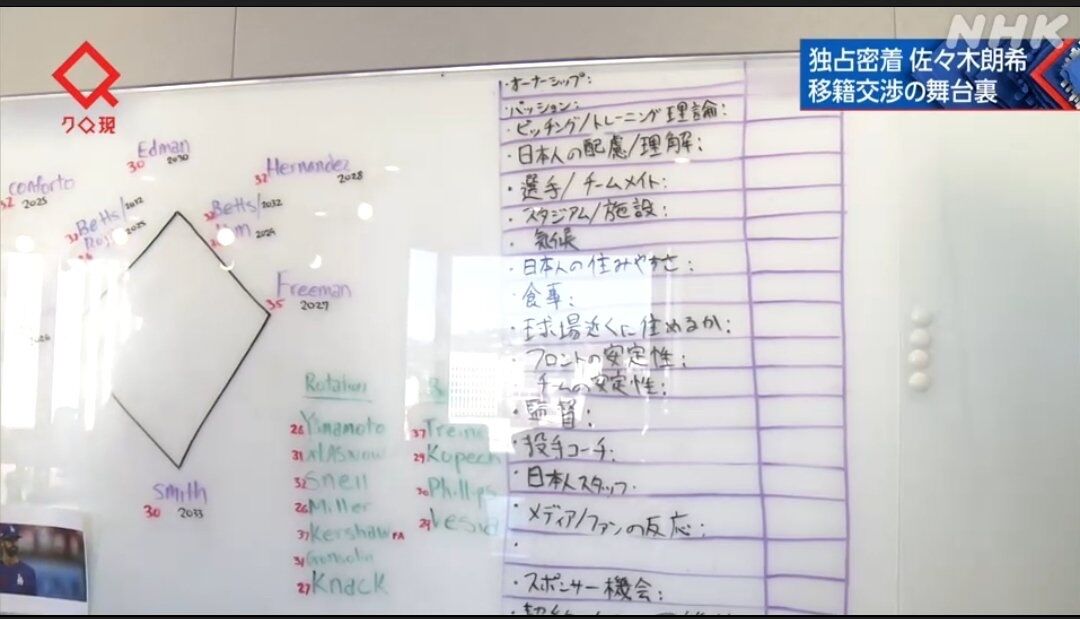 NHK
独占密着 佐々木朗希
移籍交渉の舞台裏
クロ現
Edman
30 2030
Hernandez
32 2028
Conforto
32 2025
Betts/2032
2025
Betts/2032
2026
Freeman
35 2027
2026
Smith
30 2033
Rotation
26 Yamamoto
31 Glasnow
32 Snell
26 Miller
37 Kershaw FA
31 Gonsolin
27 Knack
37 Treinen
29 Kopech
30 Phillips
29 Vesia
・オーナーシップ:
・パッション:
・ピッチング/トレーニング理論:
・日本人の配慮/理解:
・選手/チームメイト:
・スタジアム/施設:
・気候
・日本人の住みやすさ:
・食事:
・球場近くに住めるか:
・フロントの安定性:
・チームの安定性:
・監督:
・投手コーチ:
・日本人スタッフ・
・メディア/ファンの反応:
・
・スポンサー機会: